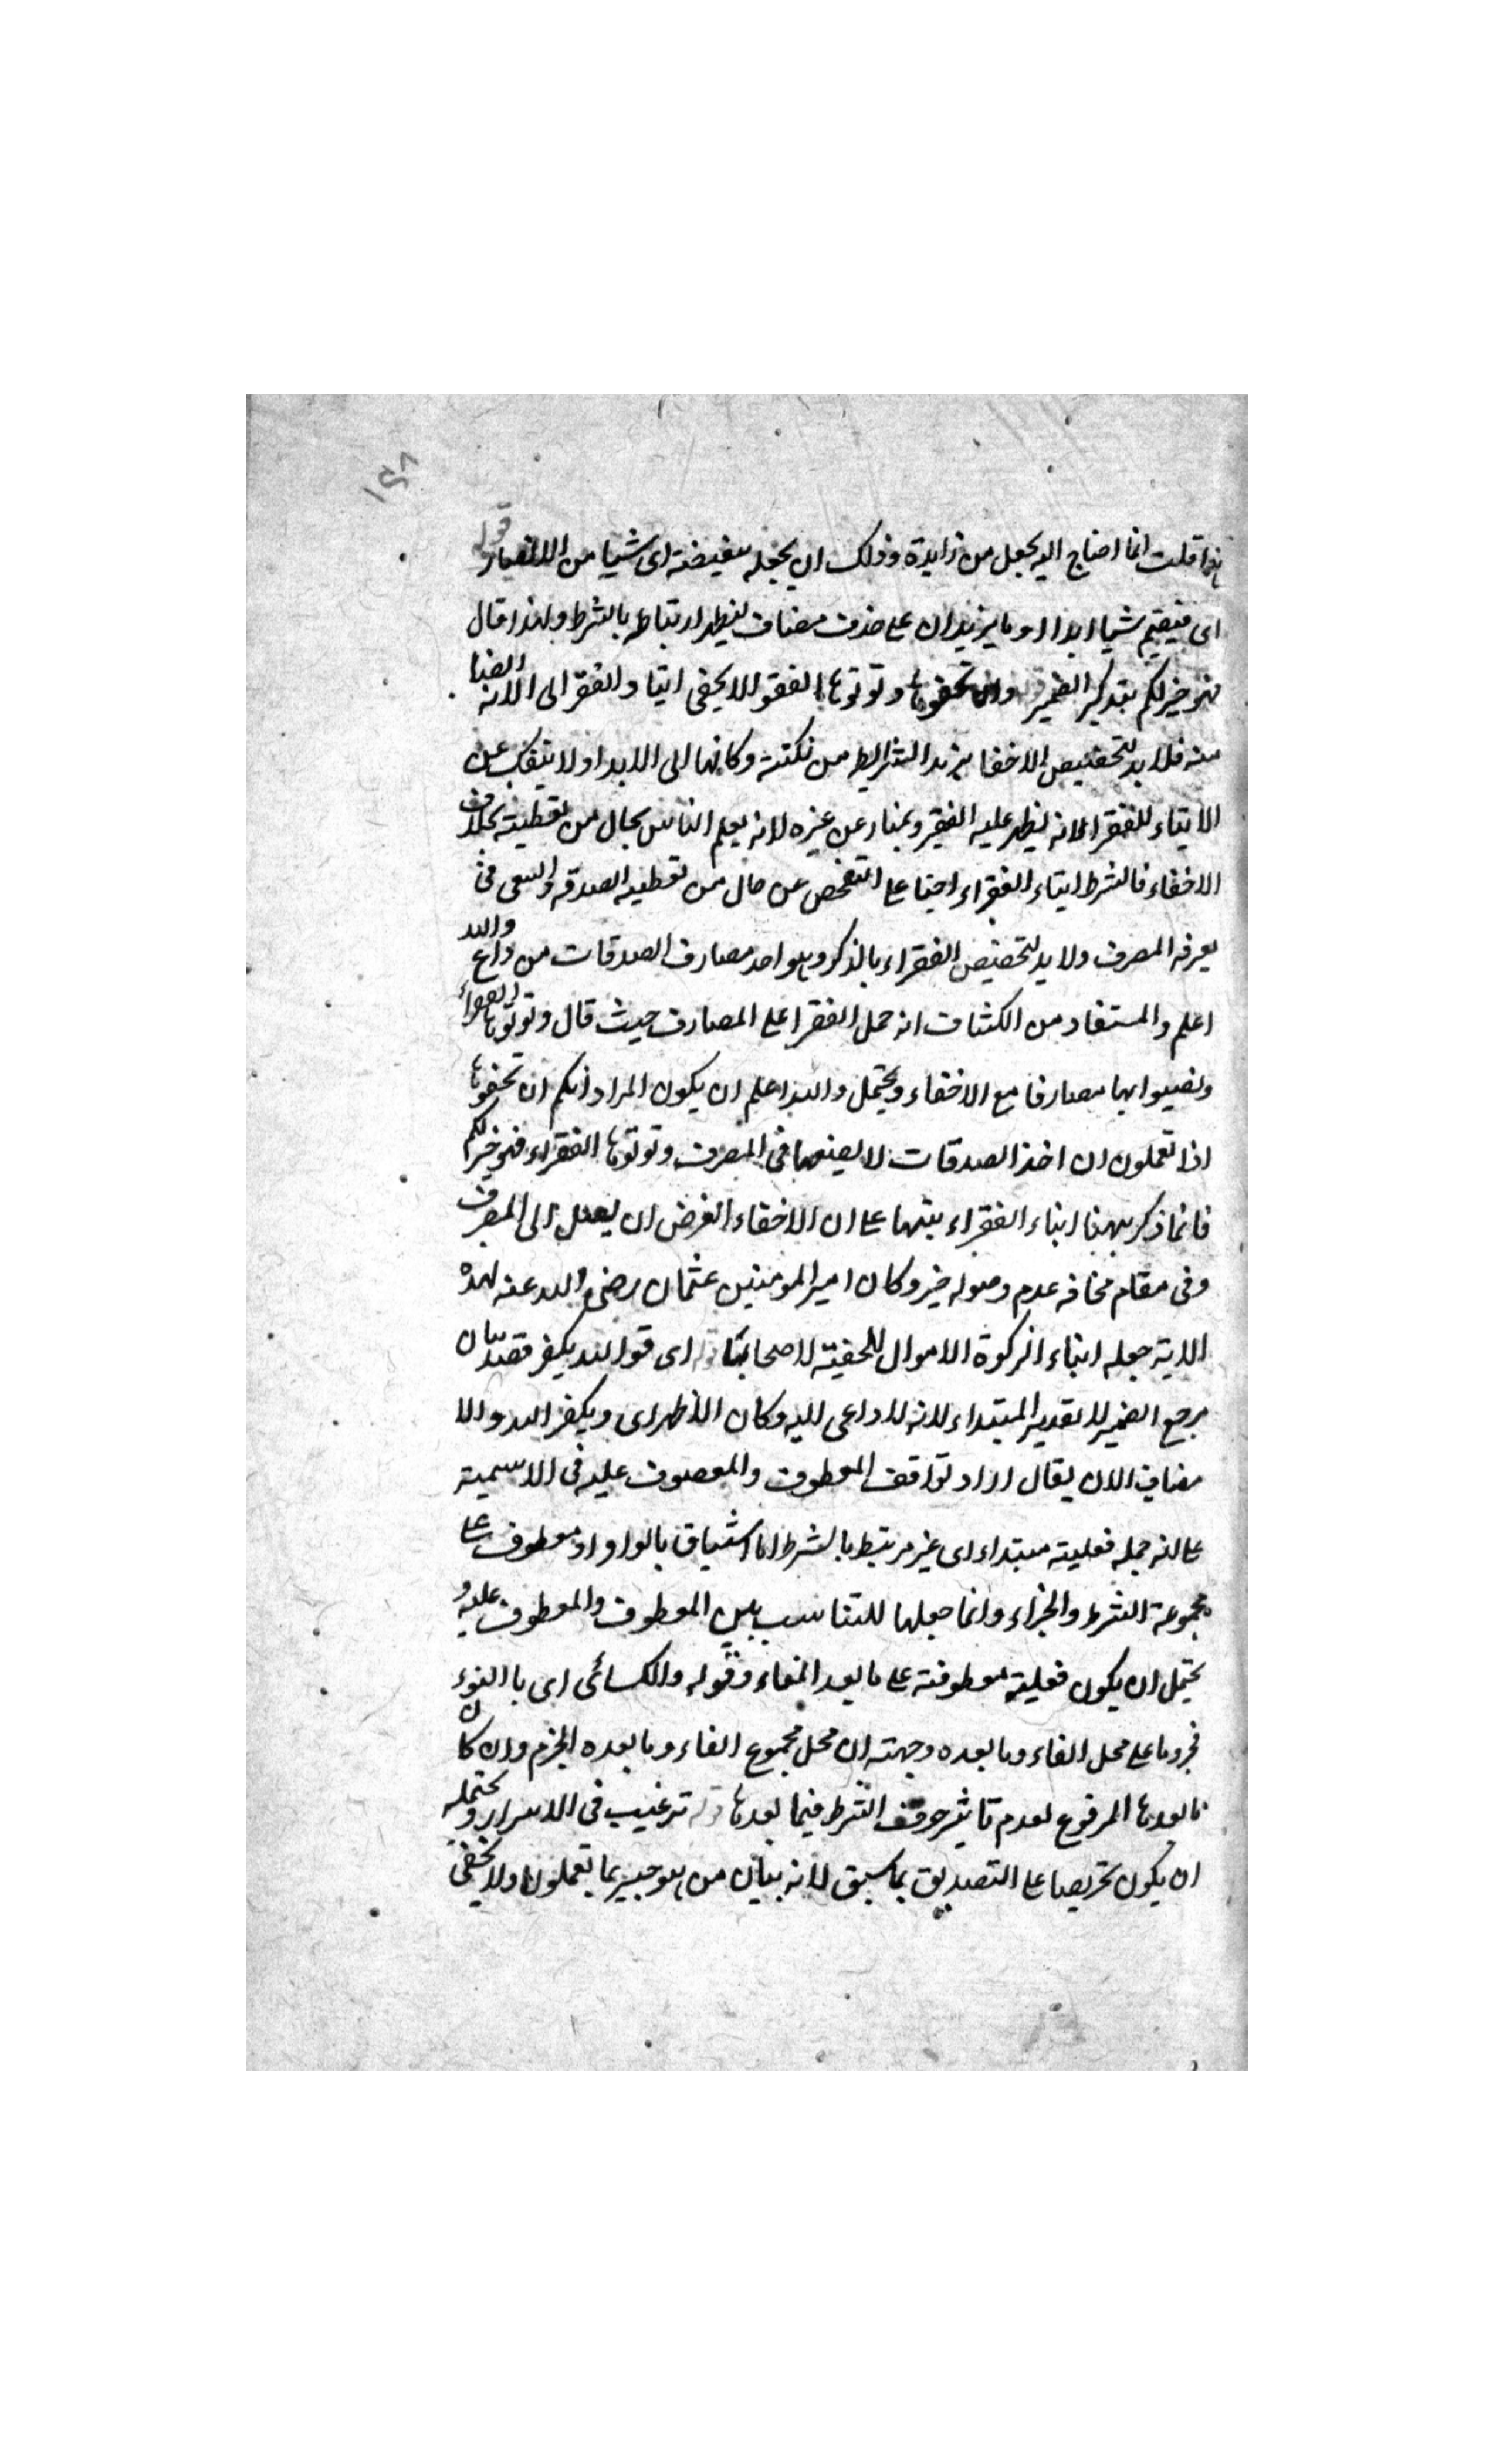 قلت انما احتاج اليه يجعل من زايدة وذلك ان يجعله تبعيضته اى شيا من الانصار قوله
اى فنعم شيا ابداا وما يريد ان على حذف مضاف ليظهر ارتباطه بالشرط ولهذا قال
فهو خير لكم بتذكير الضمير وان تخفوها وتوتوها الفقرا لا يخفى ايتاء الفقرا الى الانه ايضا
منه فلا بد لتخصيص الاخفا بزيد الشرايط من نكتته وكانها الى الابدا ولا ينفك عن
الايتاء للفقرا لانه يظهر عليه الفقير ويمتاز عن غيره لانه يعلم الناس بحال من تعطيته بخلاف
الاخفاء فالشرط ايتاء الفقراء احتيا على التفحص عن حال من تعطيه الصدقه والسعى فى
يعرفه المصرف ولا بد لتخصيص الفقراء بالذكر وهو احد مصارف الصدقات من داع والله
اعلم والمستفاد من الكشاف انه حمل الفقرا على المصارف حيث قال وتوتوها الفقراء
وتصيبوا بها مصارفا مع الاخفاء ويحتمل والله اعلم ان يكون المراد انكم ان تخفوها
اذا تعملون ان اخذ الصدقات لا يضعها فى المصرف وتوتوها الفقراء فهو خير لكم
فانما ذكر ههنا ايتاء الفقراء بتنبها على ان الاخفاء الغرض ان يصل الى المصرف
وفى مقام مخافه عدم وصوله خير وكان امير المومنين عثمان رضى الله عنه لهذه
الاية جعله ايتاء الزكوة الاموال المخفيته لاصحابها قوله اى قو الله يكفر قصد بيان
مرجع الضمير لا تقدير المبتداء لانه لا داعى اليه وكان الاظهر اى ويكفر الله والا
مضاف الان يقال اراد توافق المعطوف والمعطوف عليه فى الاسمية
على انه جمله فعليته مبتداء اى غير مرتبط بالشرط اما استياف بالواو او معطوف على
مجموعة الشرط والجزاء وانما جعلها للتناسب بين المعطوف والمعطوف عليه و
يحتمل ان يكون فعليته معطوفته على ما بعد الفاء وقوله والكسائى اى با النوء
مجزوما على محل الفاء وما بعده وجهته ان محل مجموع الفاء وما بعده الجزم وان كان
ما بعدها المرفوع لعدم تاثير حرف الشرط فيما بعدها قوله ترغيب فى الاسرار ويحتمله
ان يكون تحريصا على التصديق بما سبق لانه بيان من هو خبير بما تعملون ولا يخفى